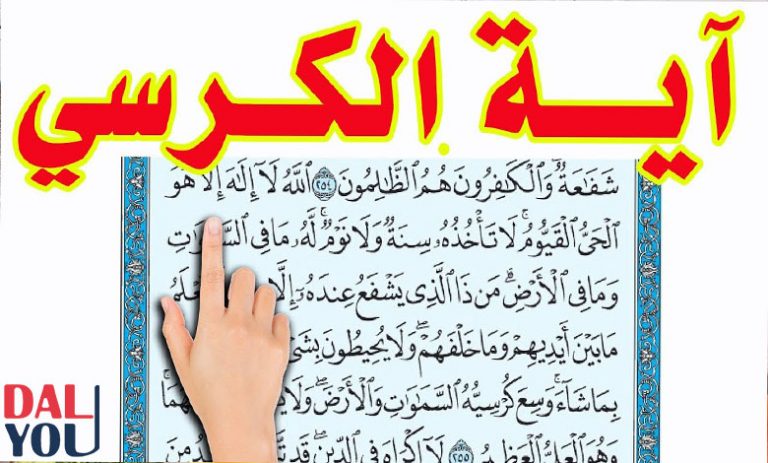 آية الكرسي
شَفَٰعَةٌۗ وَٱلْكَٰفِرُونَ هُمُ ٱلظَّٰلِمُونَ ٢٥٤ ٱللَّهُ لَآ إِلَٰهَ إِلَّا هُوَ
ٱلْحَىُّ ٱلْقَيُّومُۚ لَا تَأْخُذُهُۥ سِنَةٌ وَلَا نَوْمٌۚ لَّهُۥ مَا فِى
وَمَا فِى ٱلْأَرْضِۗ مَن ذَا ٱلَّذِى يَشْفَعُ عِندَهُۥٓ إِلَّا
مَا بَيْنَ أَيْدِيهِمْ وَمَا خَلْفَهُمْۖ وَلَا يُحِيطُونَ
بِمَا شَآءَۚ وَسِعَ كُرْسِيُّهُ ٱلسَّمَٰوَٰتِ وَٱلْأَرْضَۖ
وَهُوَ ٱلْعَلِىُّ ٱلْعَظِيمُ ٢٥٥ لَآ إِكْرَاهَ فِى ٱلدِّينِۖ قَد
DAL
YOU